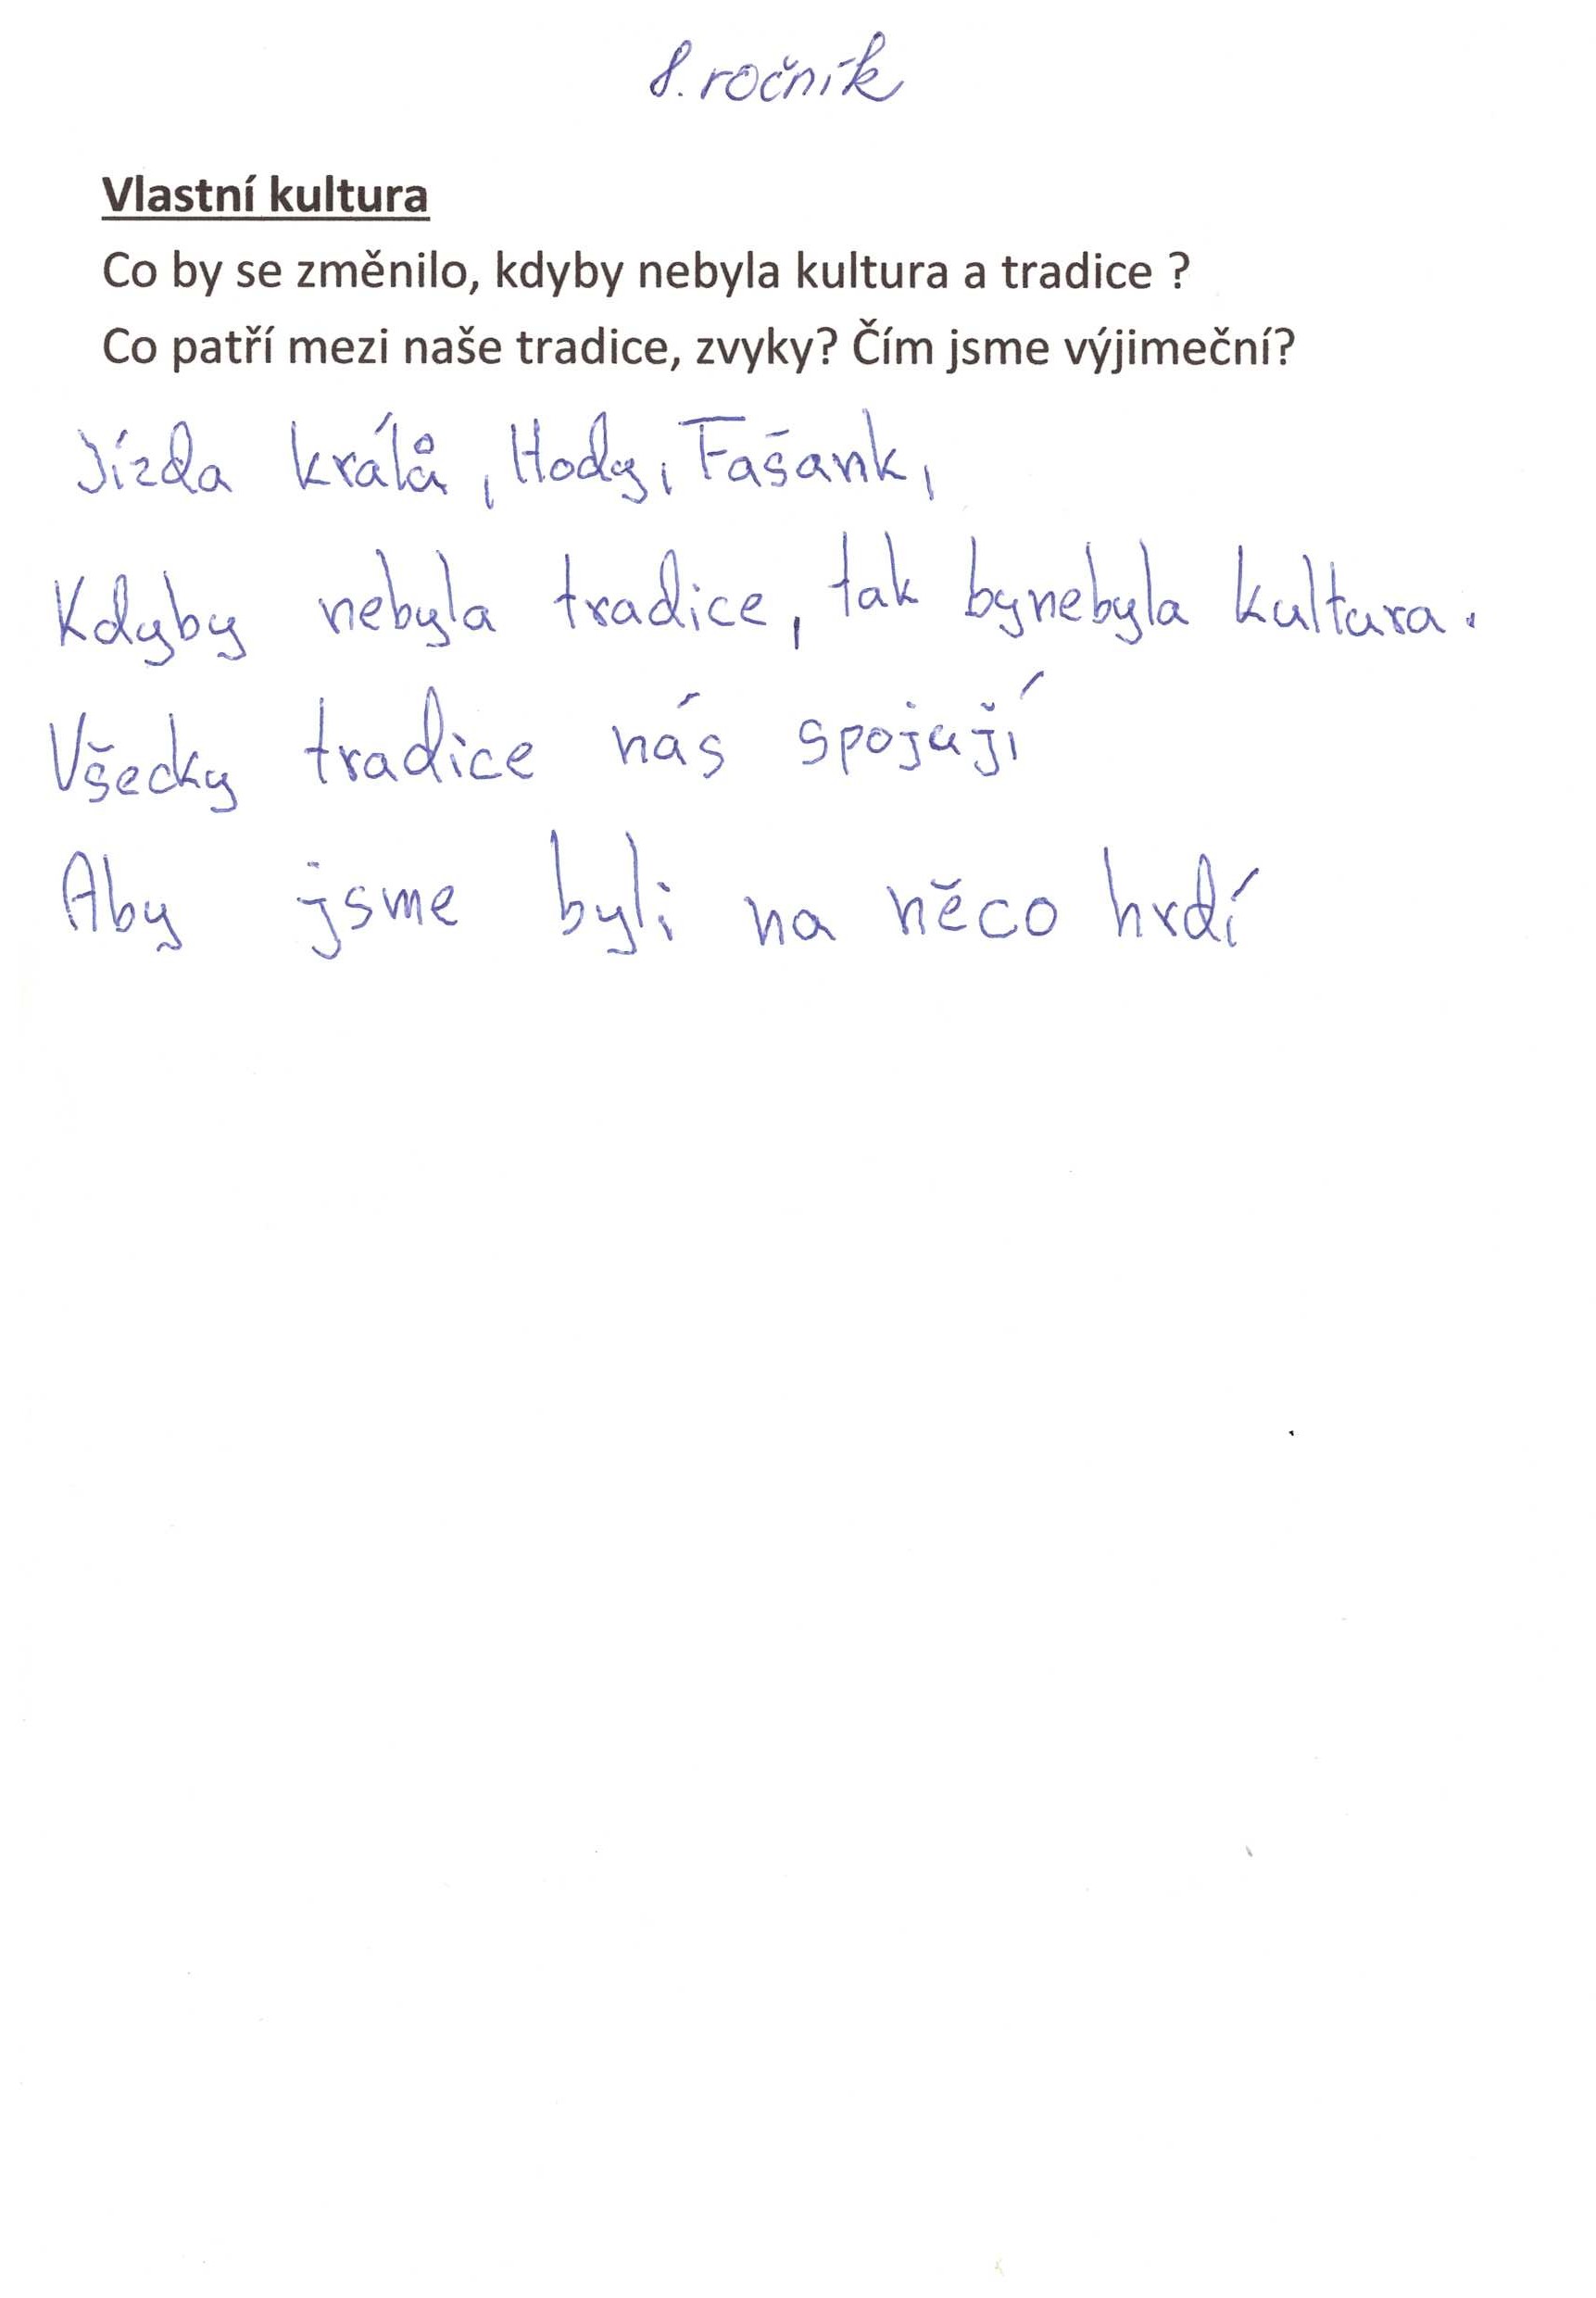 8. ročník
Vlastní kultura
Co by se změnilo, kdyby nebyla kultura a tradice ?
Co patří mezi naše tradice, zvyky? Čím jsme výjimeční?
Jízda králů, Hody, Fašank,
Kdyby nebyla tradice, tak bynebyla kultura.
Všecky tradice nás spojují
Aby jsme byli na něco hrdí